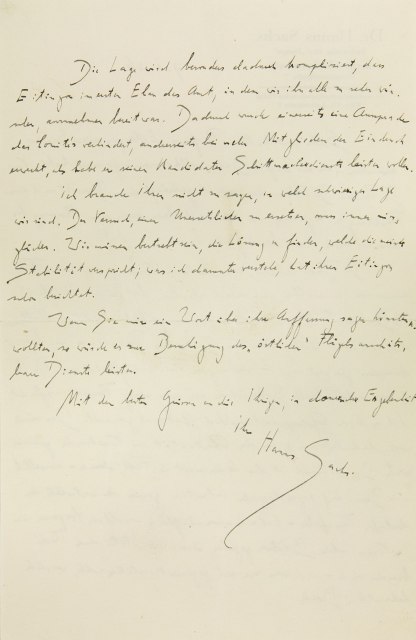 Die Lage wird besonders dadurch kompliziert, dass
Eitingon im ersten Elan das Amt, in dem wir ihn alle so sehr wün-
schen, anzunehmen bereit war. Dadurch wurde einerseits eine Aussprache
des Comités verhindert, andererseits bei vielen Mitgliedern der Eindruck
erweckt, als habe er seiner Kandidatur Schrittmacherdienste leisten wollen.
Ich brauche Ihnen nicht zu sagen, in welch schwieriger Lage
wir sind. Der Versuch, einen Unersetzlichen zu ersetzen, muss immer miss-
glücken. Wir müssen bestrebt sein, die Lösung zu finden, welche die meiste
Stabilität verspricht; was ich darunter verstehe, hat Ihnen Eitingon
schon berichtet.
Wenn Sie mir ein Wort über Ihre Auffassung sagen könnten u.
wollten, so würde es zur Beruhigung des „östlichen" Flügels
Dienste leisten.
Mit den besten Grüssen an die Ihrigen, in dauernder Ergebenheit
Ihr
Hanns Sachs.